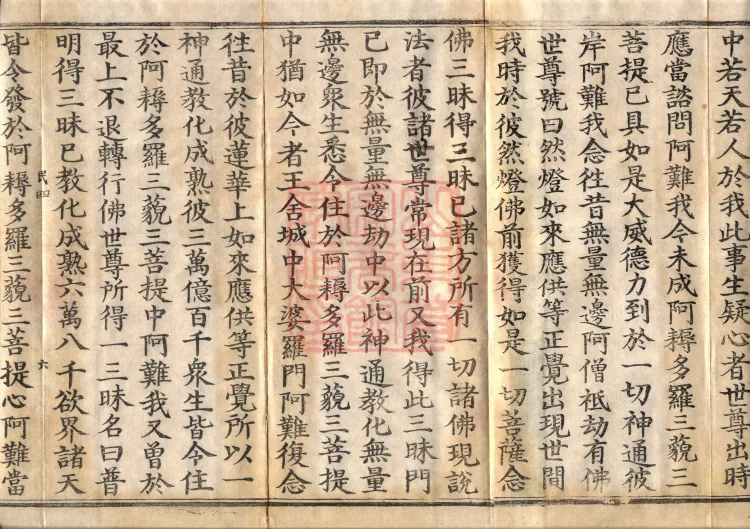 中若天若人於我此事生疑心者世尊出時
應當諮問阿難我今未成阿耨多羅三藐三
菩提已具如是大威德力到於一切神通彼
岸阿難我念徃昔無量無邊阿僧祇劫有佛
世尊號曰然燈如來應供等正覺出現世間
我時於彼然燈佛前獲得如是一切菩薩念
佛三昧得三昧已諸方所有一切諸佛現說
法者彼諸世尊常現在前又我得此三昧門
已即於無量無邊劫中以此神通教化無量
無邊衆生悉令住於阿耨多羅三藐三菩提
中猶如今者王舍城中大婆羅門阿難復念
徃昔於彼蓮華上如來應供等正覺所以一
神通教化成熟彼三萬億百千衆生皆令住
於阿耨多羅三藐三菩提中阿難我又曾於
最上不退轉行佛世尊所得一三昧名曰普
明得三昧已教化成熟六萬八千欲界諸天
民四
六
皆令發於阿耨多羅三藐三菩提心阿難當